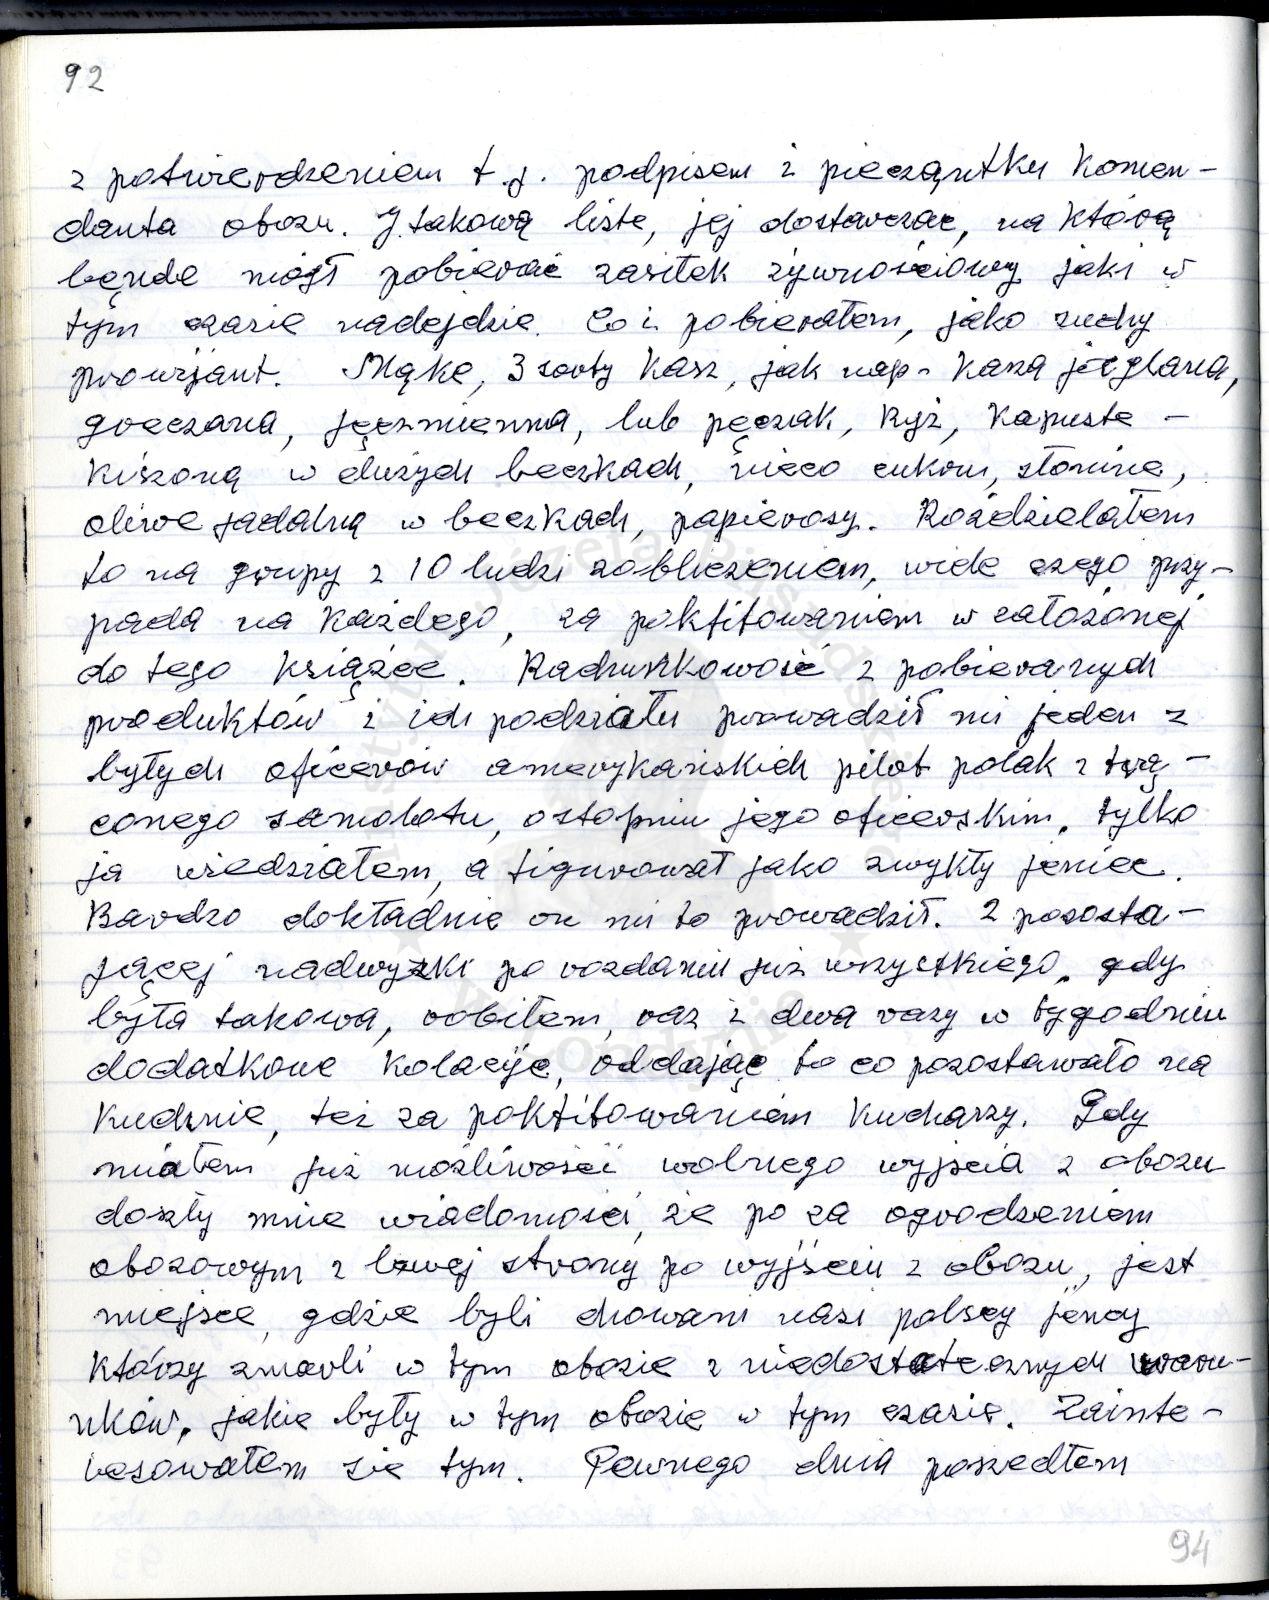 92
z potwierdzeniem t.j. podpisem i pieczątku Komen-
danta obozu. J takową liste, jej dostarczać, na którą
bęnde mógł pobierać zasiłek żywnościowy jaki w
tym czasie nadejdzie. Co i pobierałem, jako suchy
prowijant. Mąke, 3 sorty Kasz, jak nap- Kasza jęglana,
greczana, jęczmienna, lub pęczak, Ryż, Kapuste -
Kiszoną w dużych beczkach, nieco cukru, słonine,
oliwe jadalną w beczkach, papierosy. Rozdzielałem
to na grupy z 10 ludzi z obliczeniem, wiele czego przy-
pada na Każdego, za pokfitowaniem w założonej
do tego książce. Rachunkowość z pobieranych
produktów i ich podziału prowadził mi jeden z
byłych oficerów amerykańskich pilot polak z trą-
conego samolotu, o stopniu jego oficerskim, tylko
ja wiedziałem, a figurował jako zwykły jeniec.
Bardzo dokładnie on mi to prowadził. Z pozosta-
jącej nadwyżki po rozdaniu już wszystkiego, gdy
była takowa, robiłem, raz i dwa razy w tygodniu
dodatkowe Kolacije, oddając to co pozostawało na
Kuchnie, też za pokfitowaniem Kucharzy. Gdy
miałem już możliwości wolnego wyjścia z obozu
doszły mnie wiadomości, że po za ogrodzeniem
obozowym z lewej strony po wyjściu z obozu, jest
miejsce, gdzie byli chowani nasi polscy jency
Którzy zmarli w tym obozie z niedostatecznych waru-
nków, jakie były w tym obozie w tym czasie. Zainte-
resowałem sie tym. Pewnego dnia poszedłem
94